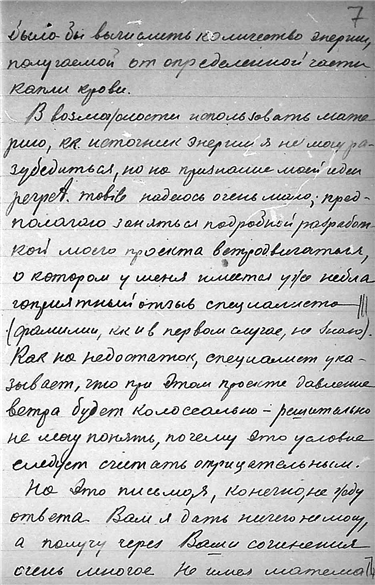 7
было бы вычислить количество энергии,
получаемой от определенной части
капли крови.
В возможности использовать мате
рию, кк источник энергии я не могу ра-
зубедиться, но на признание моей идеи
надеюсь очень мало; пред-
полагаю заняться подробной разработ
кой моего проекта ветродвигателя,
о котором у меня имеется уже небла
гоприятный отзыв специалиста
(фамилии, кк и в первом случае, не знаю).
Как на недостаток, специалист ука-
зывает, что при этом проекте давление
ветра будет колоссально – решительно
не могу понять, почему это условие
следует считать отрицательным.
На это письмо я, конечно, не жду
ответа. Вам я дать ничего не могу,
а получу через Ваши сочинения
очень многое. Не имея матема